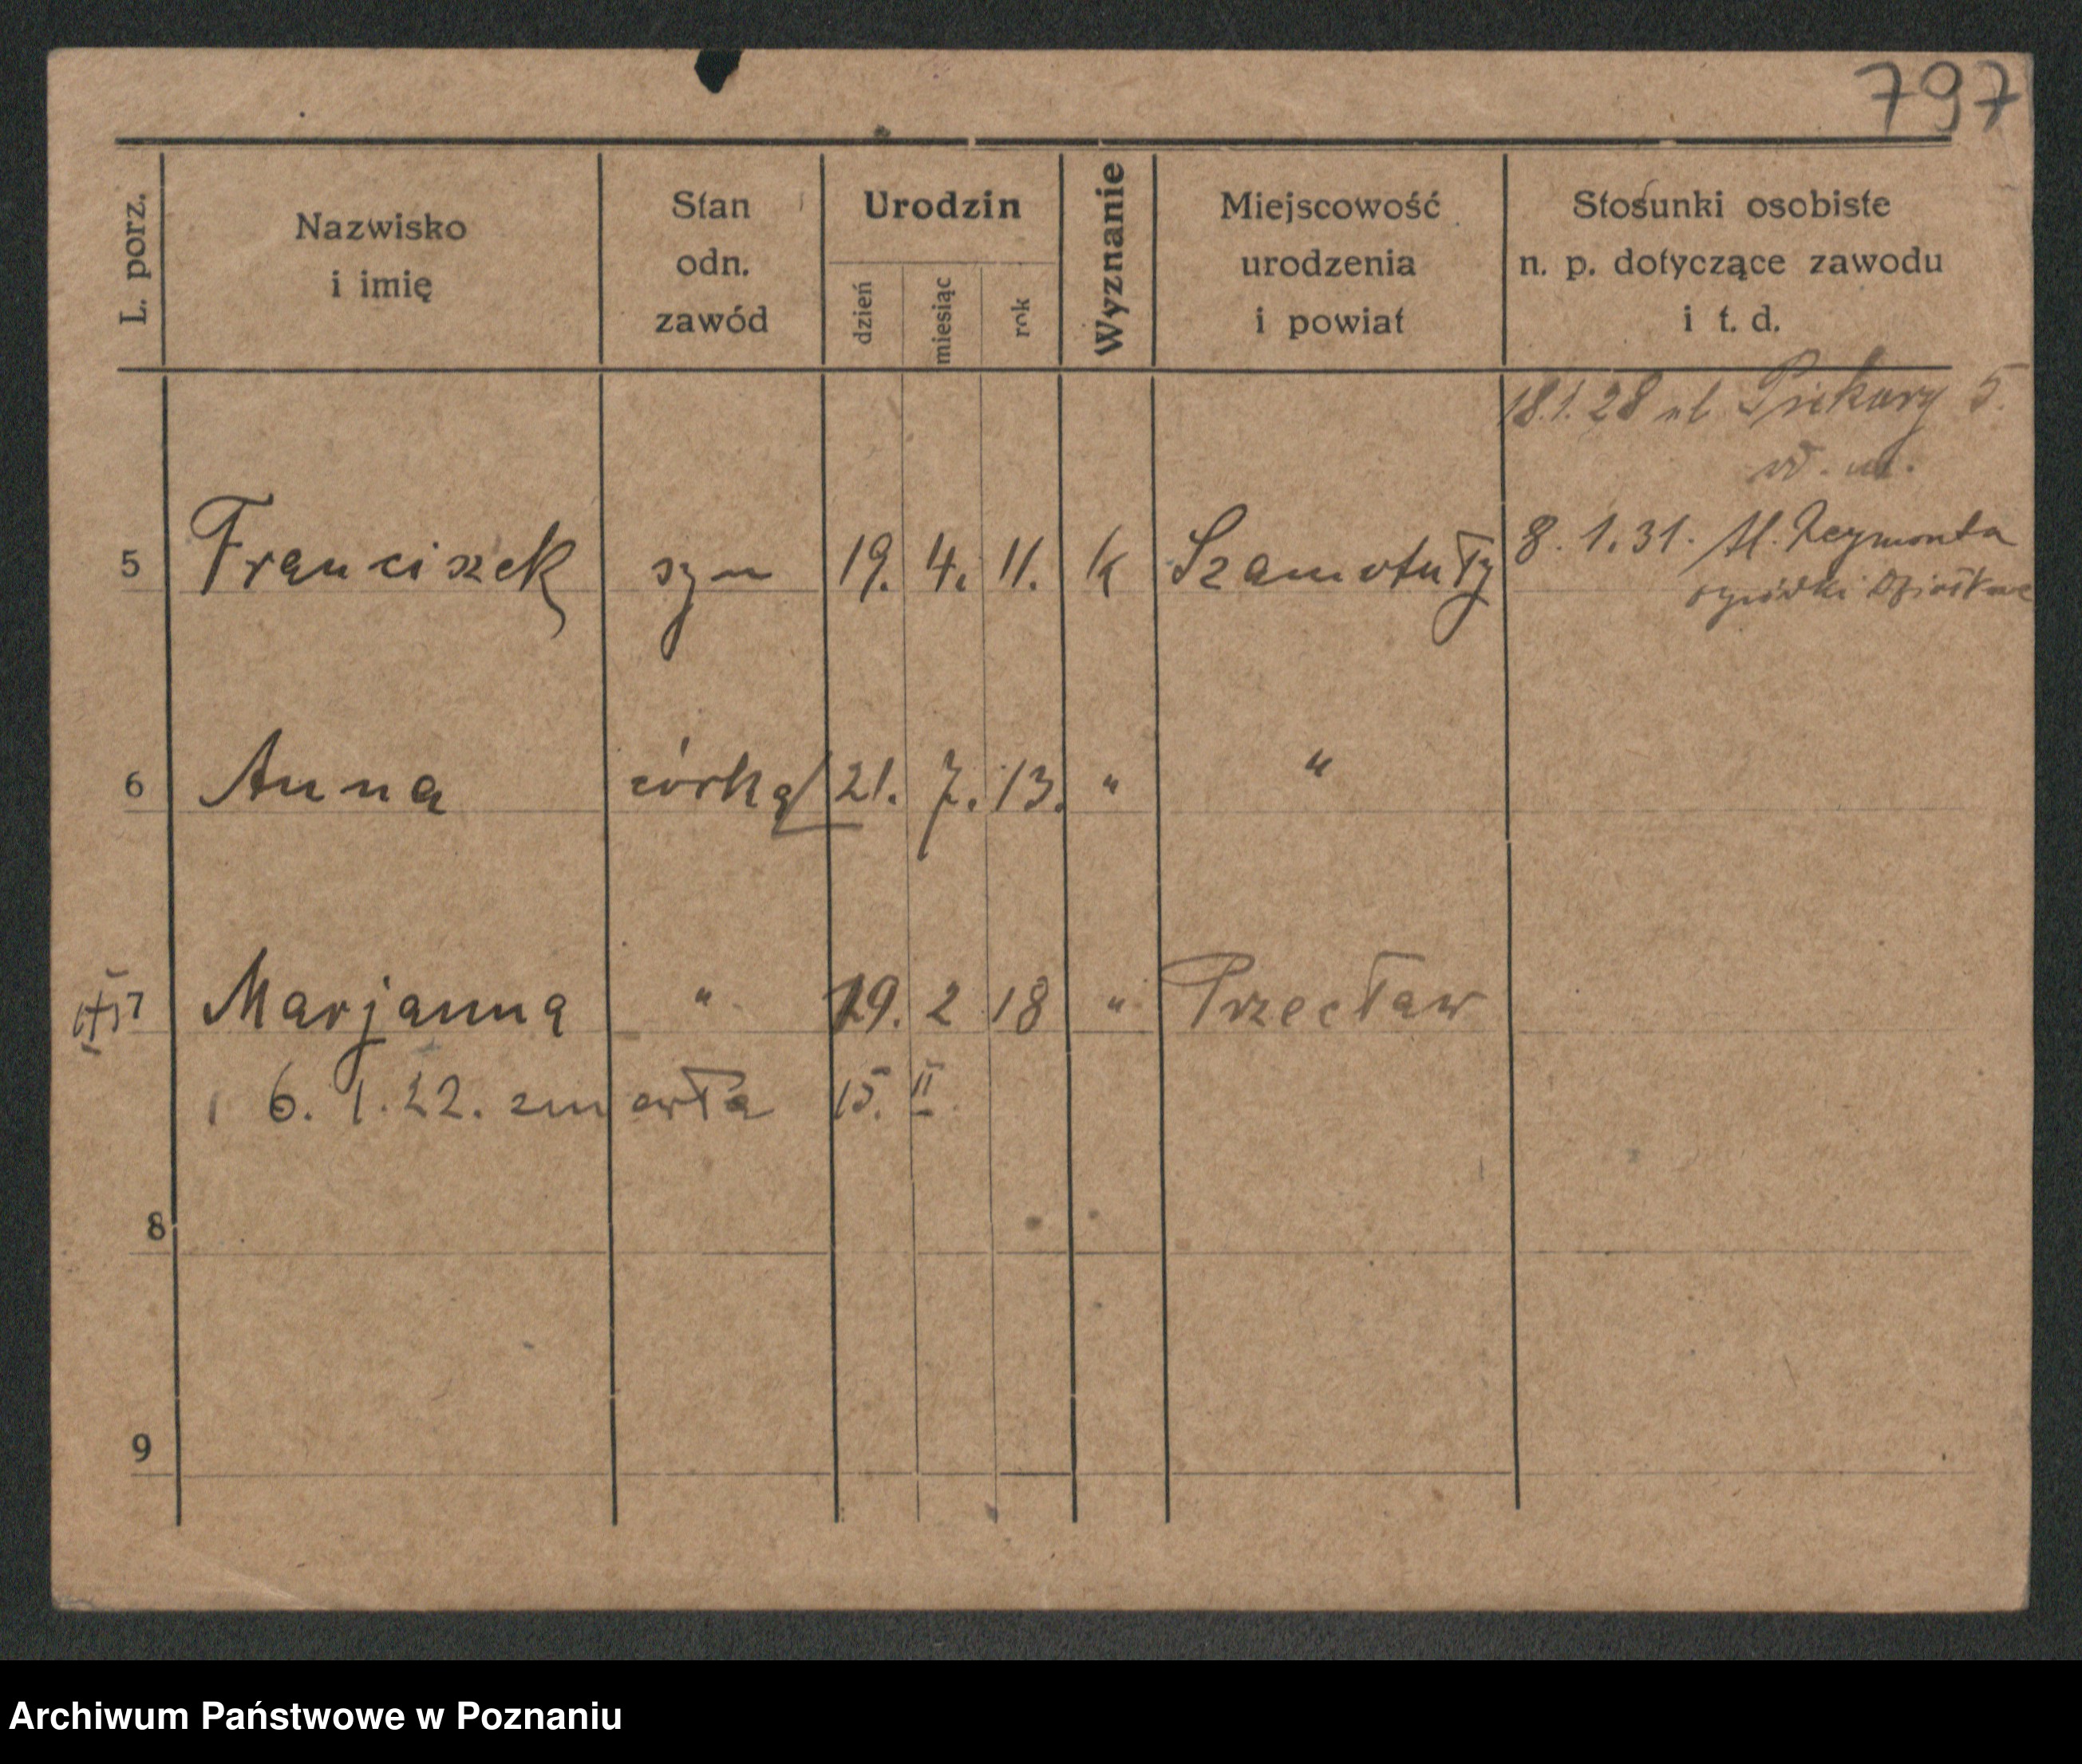 797
L. porz.
Nazwisko
i imię
Stan
odn.
zawód
Urodzin
dzień miesiąc rok
Wyznanie
Miejscowość
urodzenia
i powiat
Stosunki osobiste
n. p. dotyczące zawodu
i t. d.
18.1.28 ul Piekary 5.
5 Franciszek syn 19. 4. 11. k Szamotuły 8. 1.31. Al. Reymonta
ogródki Działkowe
6 Anna córka 21. 7. 13. " "
7 Marjanna " 19. 2 18 " Przecław
6. 1. 22. zmarła 15. II.
8
9
Archiwum Państwowe w Poznaniu